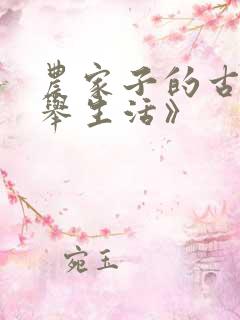 農家子的古
舉生活》
宛玉